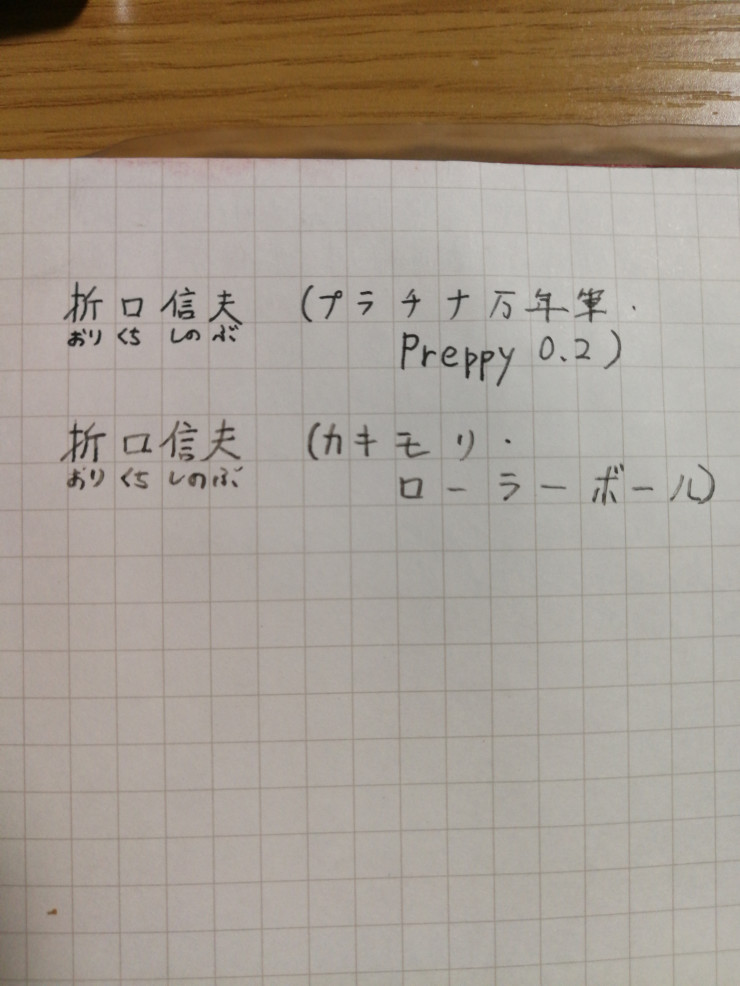 折口信夫 (プラチナ万年筆・
おりくち しのぶ
Preppy 0.2)
折口信夫 (カキモリ・
おりくち しのぶ
ローラーボール)